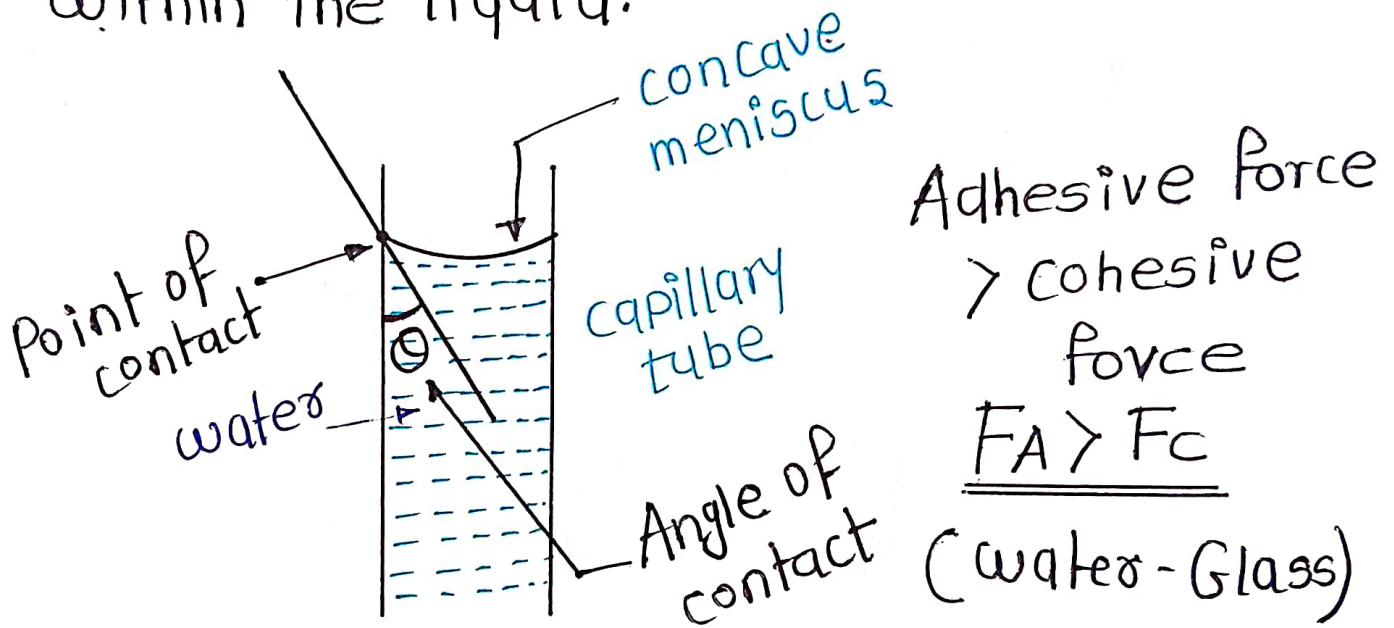 within the liquid.
concave
meniscus
Point of
contact
water
Θ
capillary
tube
Angle of
contact
Adhesive force
> cohesive
force
FA > FC
(water - Glass)